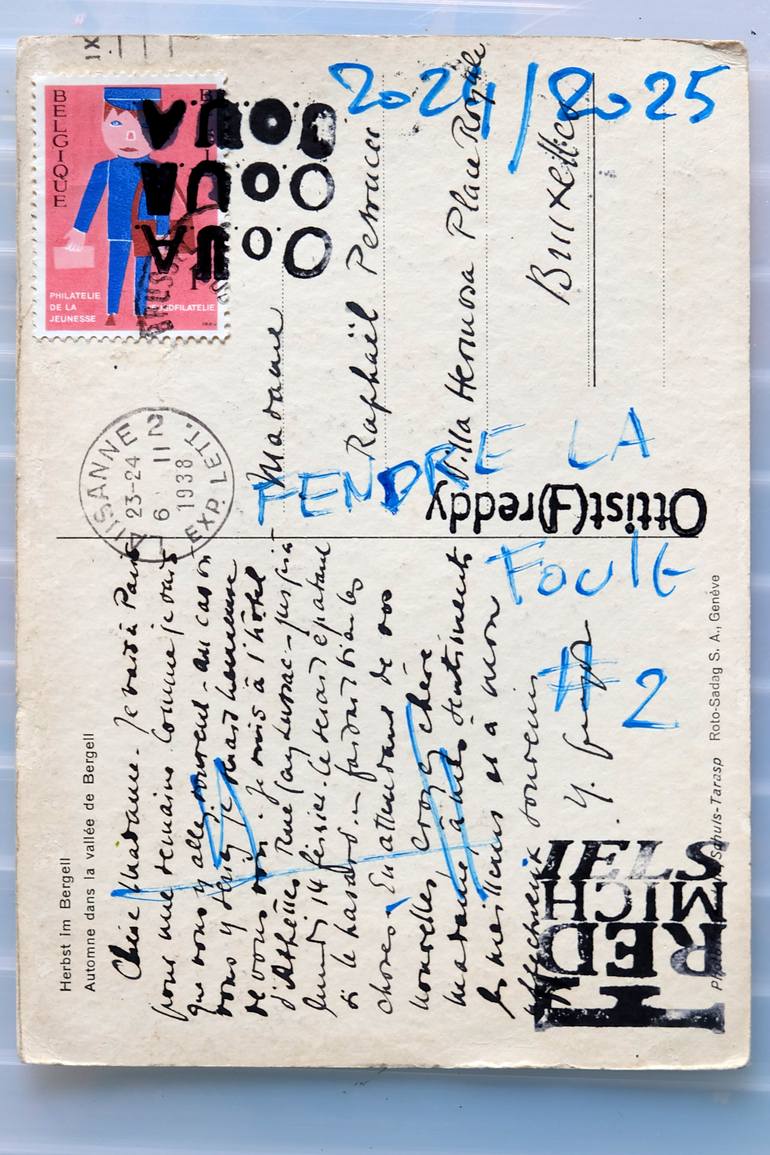 2024/2025
FENDRE LA
FOULE
#2
BELGIQUE
PHILATELIE
DE LA
JEUNESSE
OOUA
OOUA
OOUA
Ottist(F)reddy
2
23-24
6 II
1938
EXP. LETT.
Madame
Raphaël Petrucci
Villa Hermosa Place Royale
Bruxelles
Herbst im Bergell
Automne dans la vallée de Bergell
Chère Madame. Je vais à Paris
pour une semaine. Comme je sais
que vous y allez souvent - au cas où
vous y seriez je serais heureuse
de vous voir. Je suis à l'hôtel
d'Athènes Rue Gay Lussac - jusqu'à
lundi 14 février. Ce serait épatant
si le hasard
choses. En attendant de vos
nouvelles croyez chère
Madame à mes sentiments
les meilleurs et à mon
affectueux souvenir
Schuls-Tarasp Roto-Sadag S. A., Genève
IELS
MICH
RED